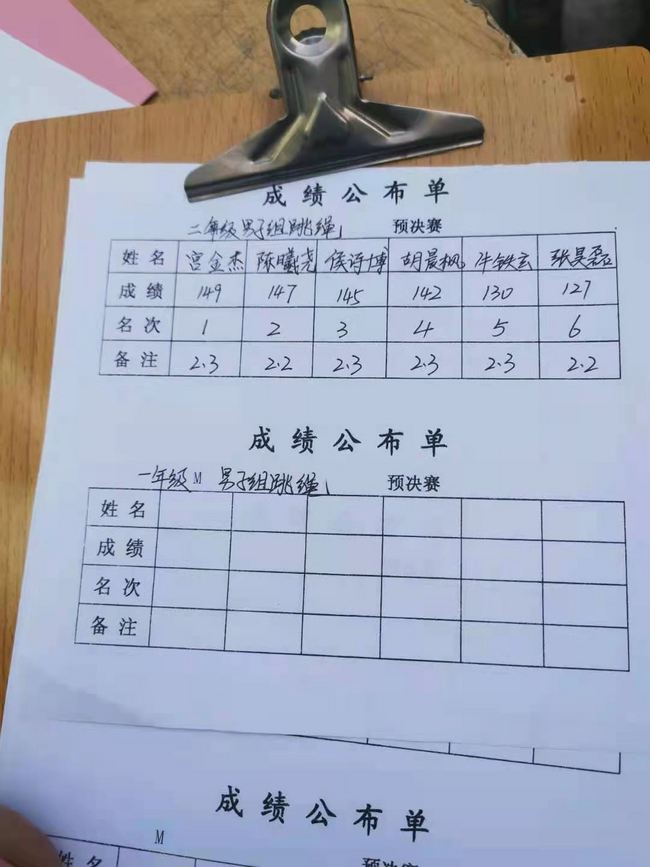 成绩公布单
二年级男子组跳绳 预决赛
姓名 宫金杰 陈曦尧 侯诗博 胡晨枫 牛铁玄 张昊磊
成绩 149 147 145 142 130 127
名次 1 2 3 4 5 6
备注 2.3 2.2 2.3 2.3 2.3 2.2
成绩公布单
一年级 M 男子组跳绳 预决赛
姓名
成绩
名次
备注
成绩公布单
M 预决赛
姓名